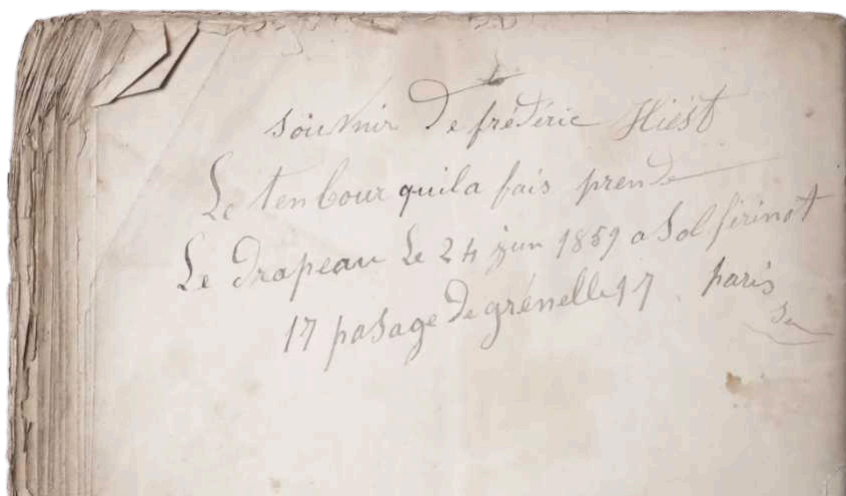 souvnir De frédéric Hiést
Le tenbour quila fais prende
Le drapeau Le 24 juin 1859 a Solfirinot
17 pasage De grénelle 17 paris